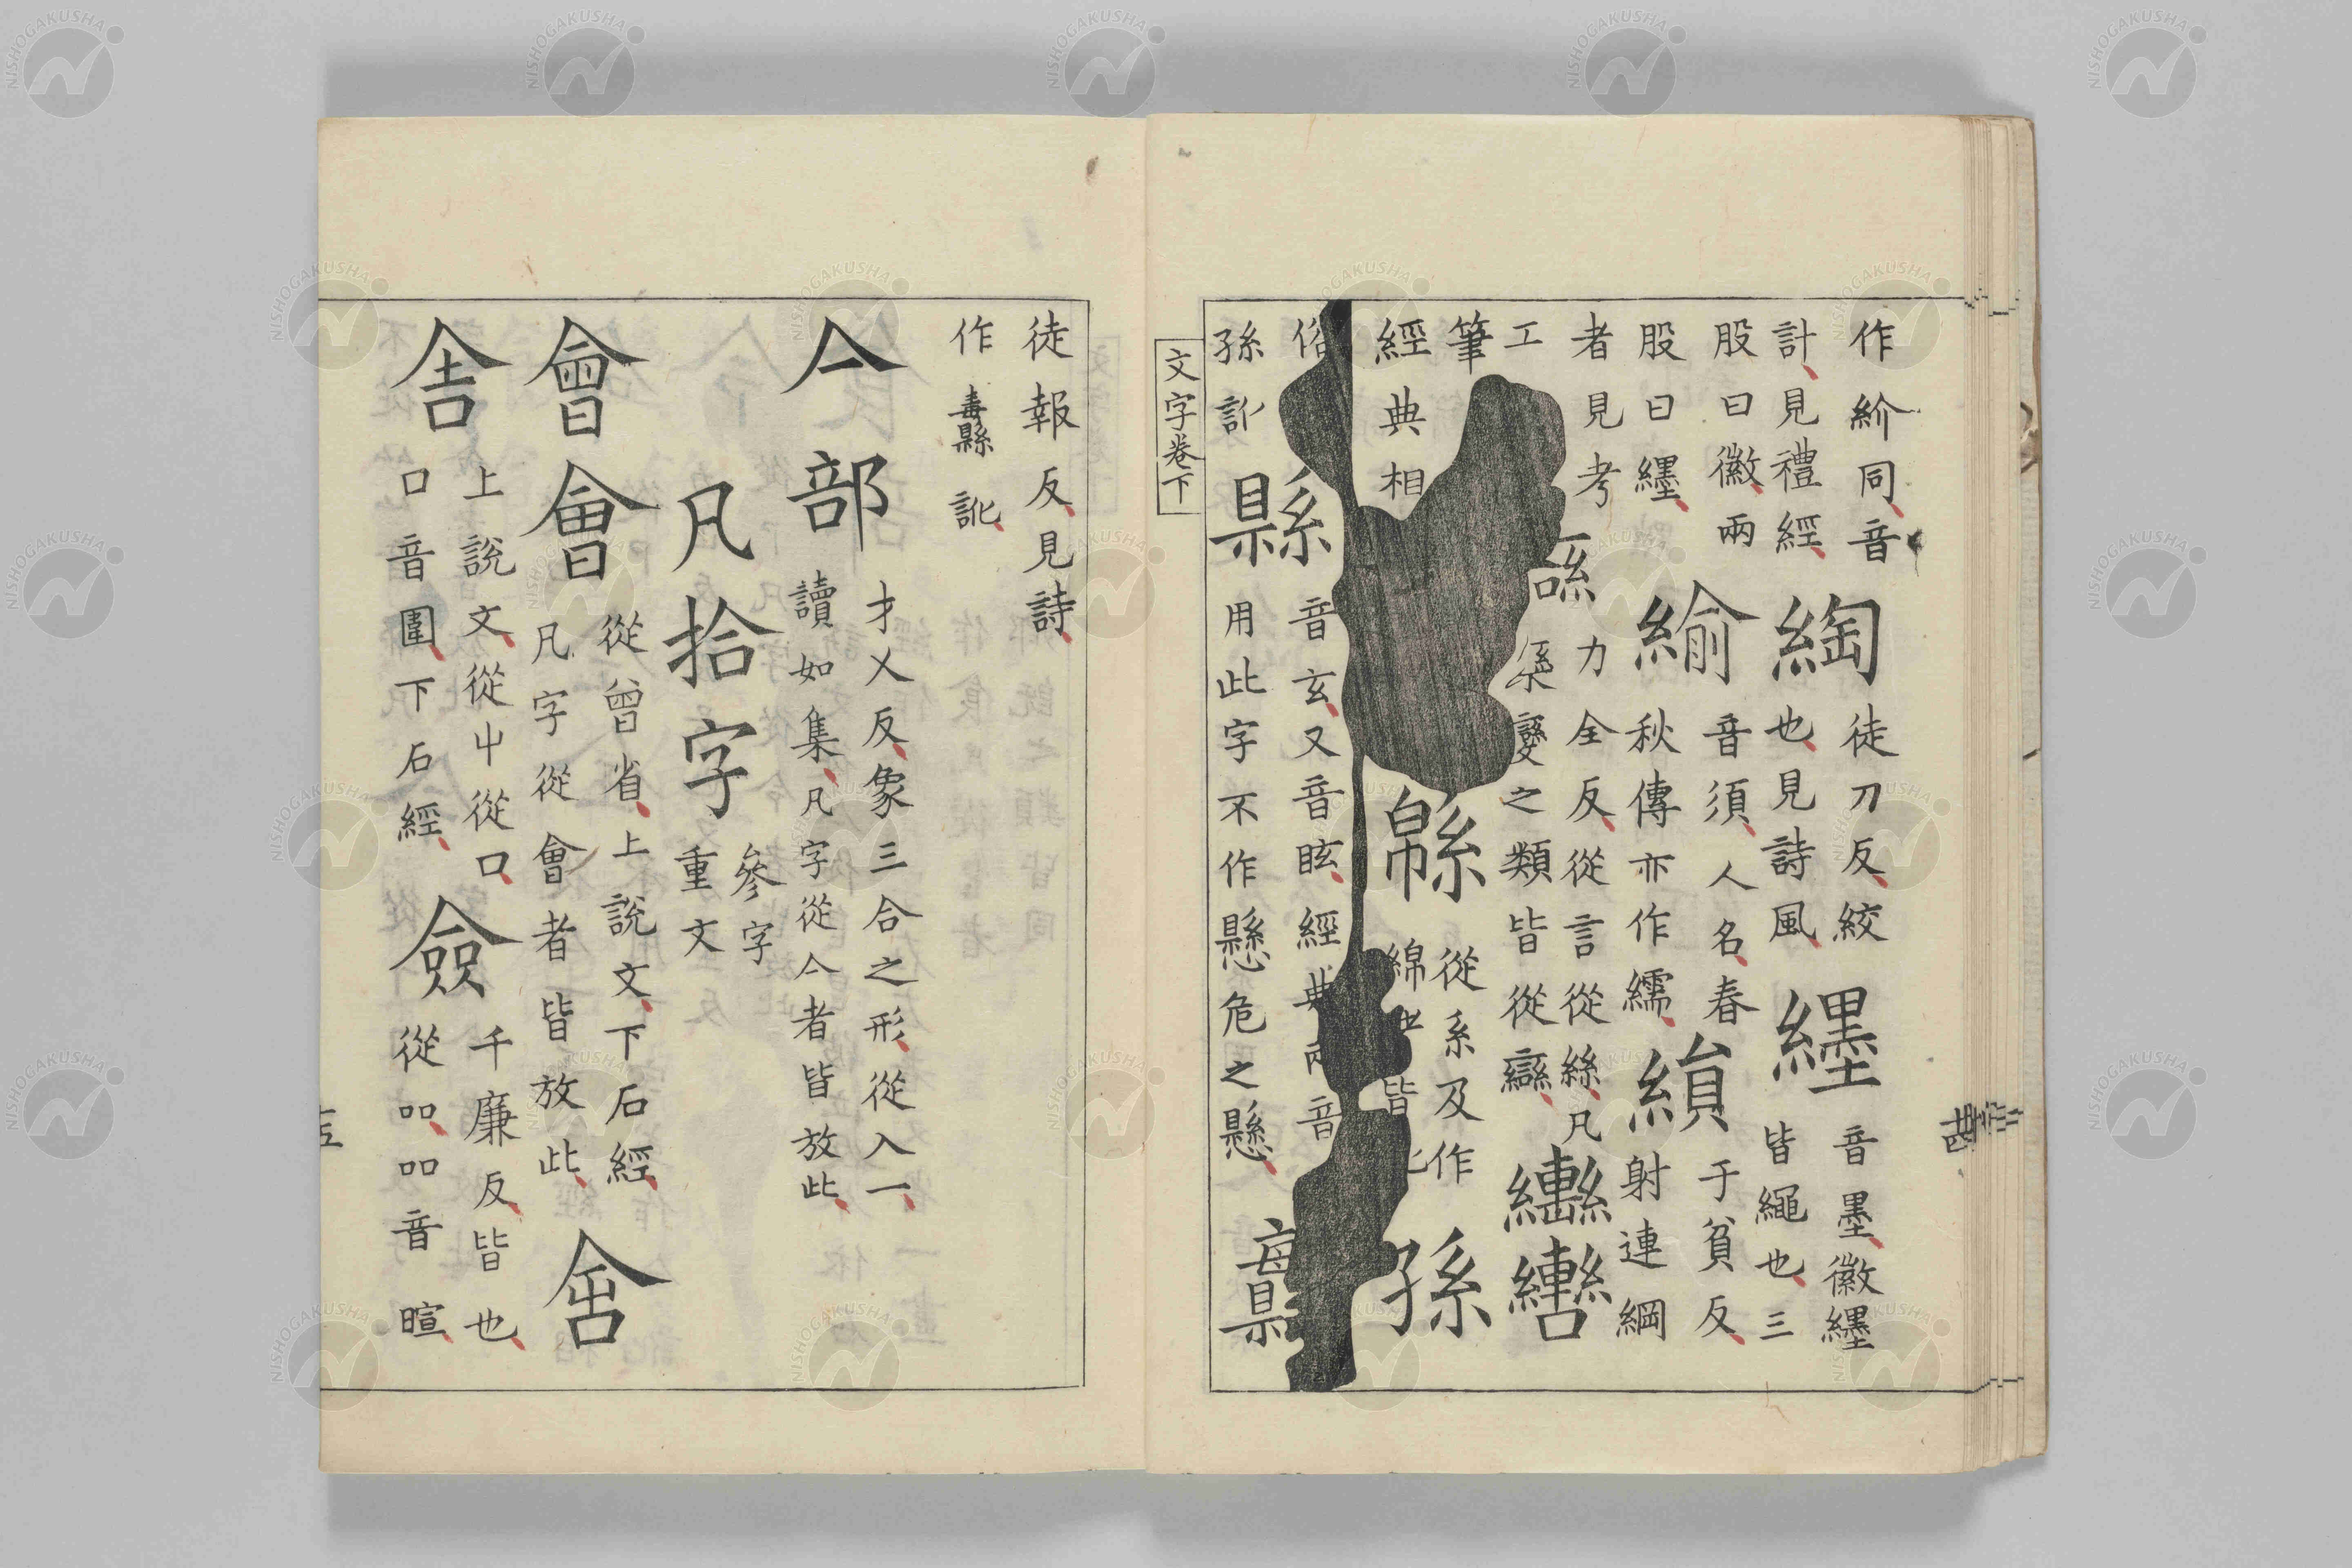 作紒同音
計見禮經
綯
徒刀反絞
也見詩風
纆
音墨徽纆
皆繩也三
股曰徽兩
股曰纆
緰
音須人名春
秋傳亦作繻
縜
于貧反
射連綱
者見考
工
力全反從言從絲凡
變之類皆從䜌
轡
筆
經典相
緜
從系及作
綿 皆
孫
俗
孫訃
縣
音玄又音眩經典兩音
用此字不作懸危之懸
文字卷下
徒報反見詩
作 訛
亼部
才乂反象三合之形從入一
讀如集凡字從亼者皆放此
凡拾字
參字
重文
會會
從曾省上說文下石經
凡字從會者皆放此
舍
上說文從屮從口
口音圍下石經
僉
千廉反皆也
從吅吅音暄
NISHOGAKUSHA